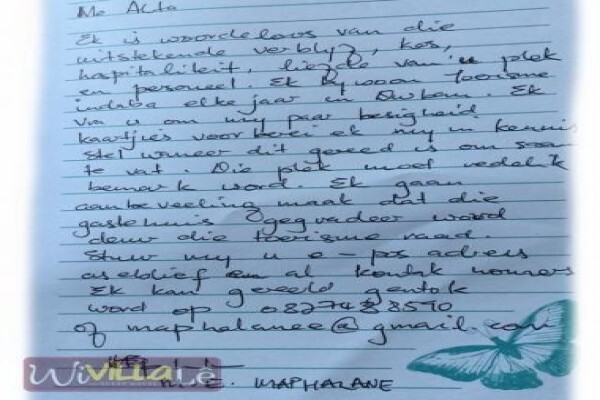 Me Alta
Ek is woordeloos van die
uitstekende verblyf, kos,
hospitaliteit, liefde van u plek
en personeel. Ek bywoon Toerisme
indaba elke jaar in Durban. Ek
vra u om my paar besigheid
kaartjies voorberei ek my in kennis
stel wneer dit gereed is om saam
te vat. Die plek moet redelik
bemark word. Ek gaan
aanbeveeling maak dat die
gastehuis gegradeer word
deur die toerisme raad.
Stuur my u e-pos adres
aseblief en al kontak nommers
Ek kan gereeld gentak
word op 0827488590
of maphalanee@gmail.com
E. MAPHALANE
WiVILLALê